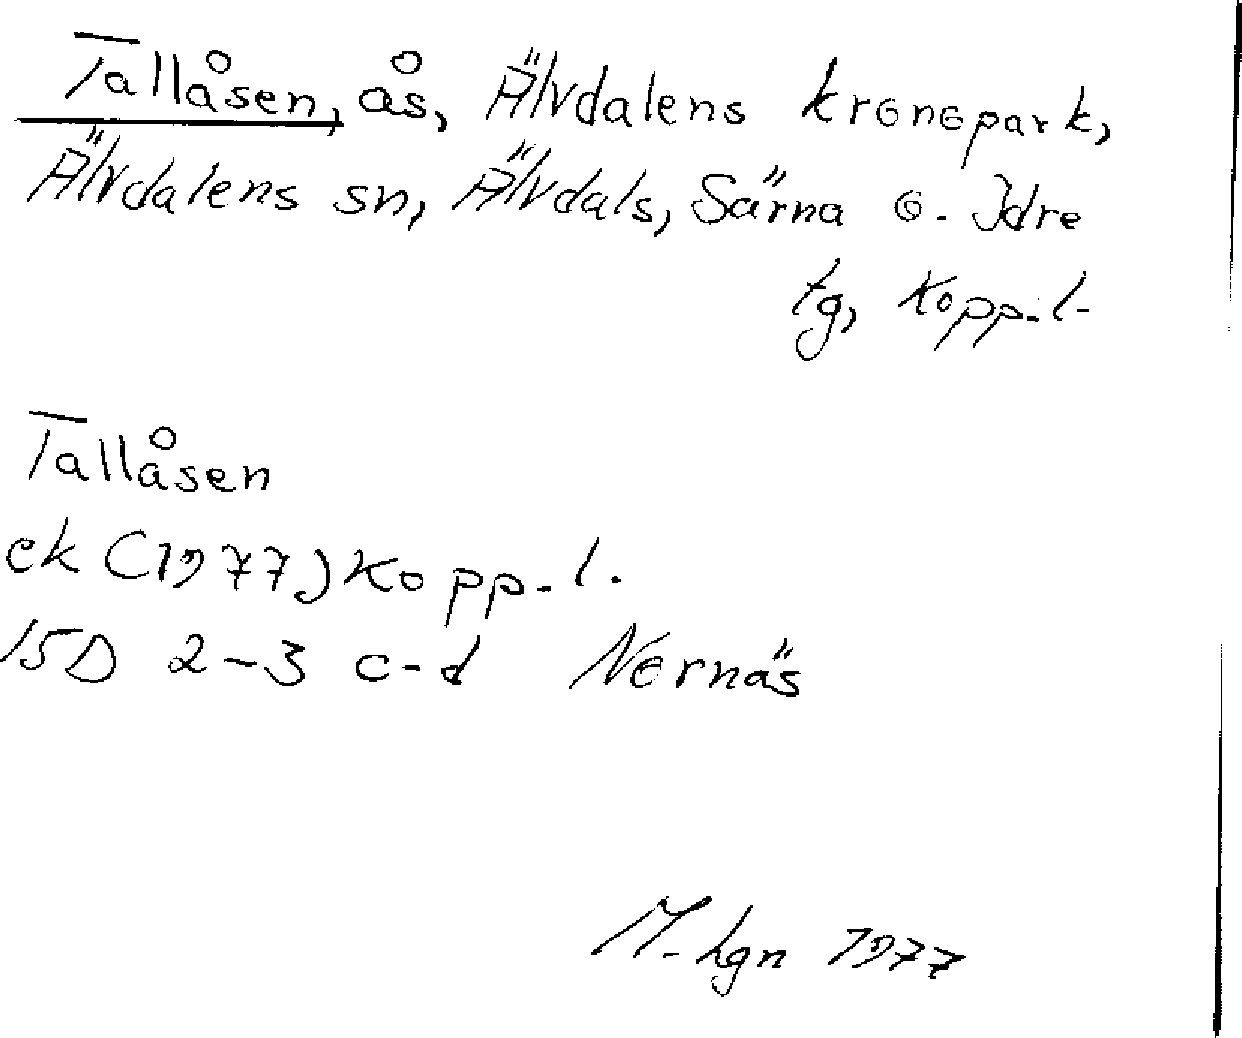 Tallåsen, ås, Älvdalens kronopark,
Älvdalens sn, Älvdals, Särna o. Idre
tg, Kopp.l.
Tallåsen
ek (1977) Kopp.l.
15D 2-3 c-d Nornäs
M-hgn 1977